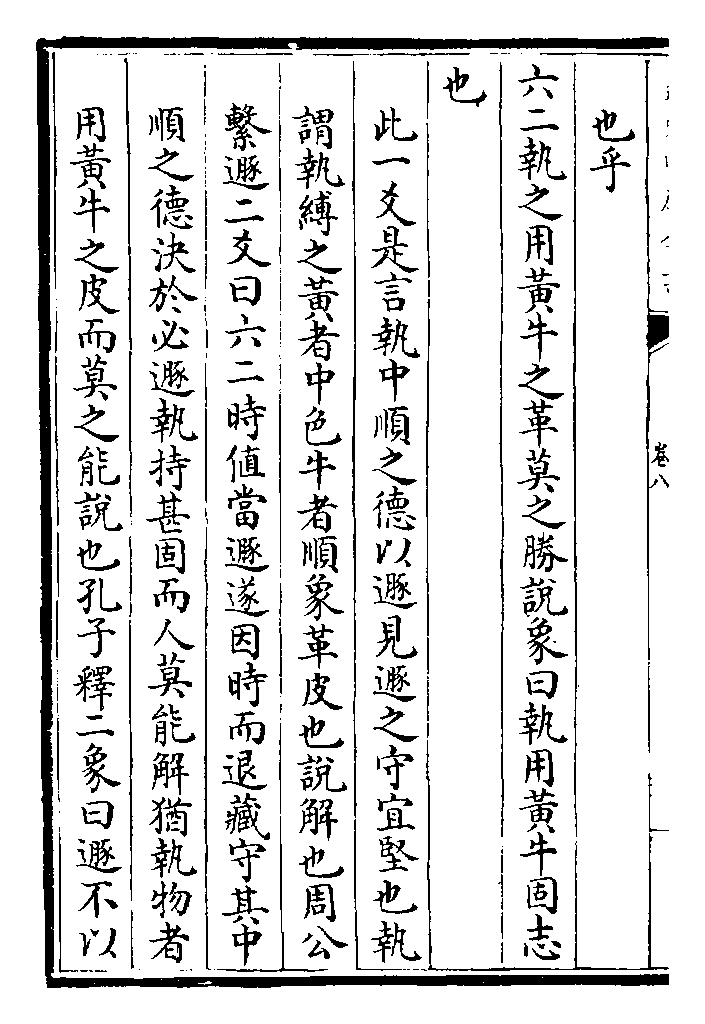 卷八
也乎
六二執之用黃牛之革莫之勝說象曰執用黃牛固志
也
此一爻是言執中順之德以遯見遯之守宜堅也執
謂執縛之黃者中色牛者順象革皮也說解也周公
繫遯二爻曰六二時值當遯遂因時而退藏守其中
順之德決於必遯執持甚固而人莫能解猶執物者
用黃牛之皮而莫之能說也孔子釋二象曰遯不以